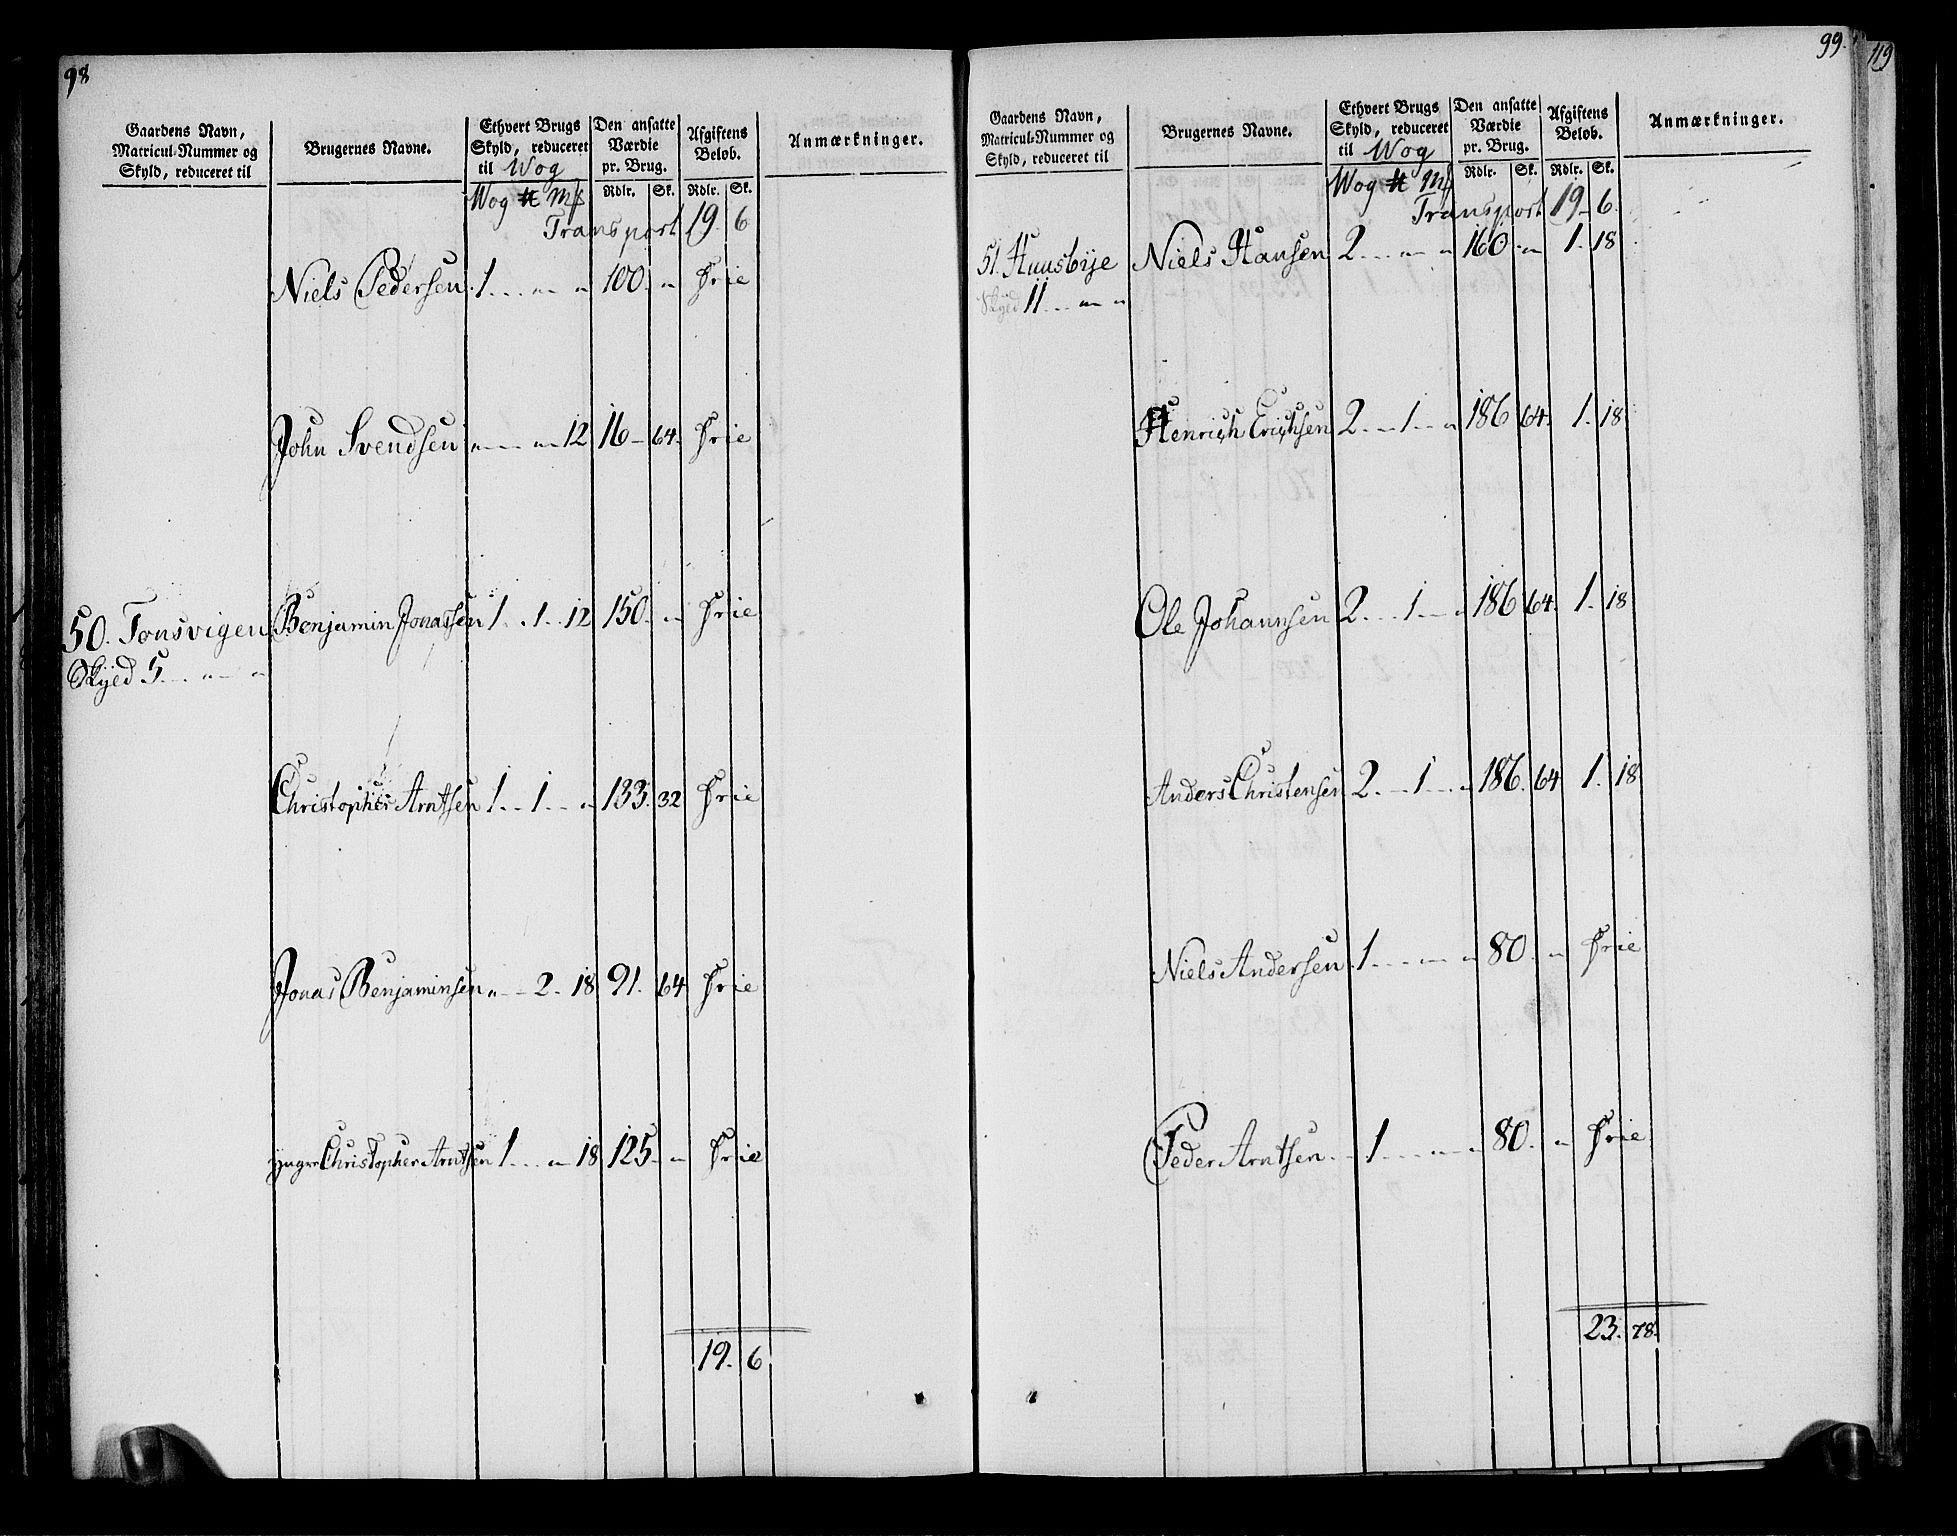 98
Gaardens Navn, Matricul-Nummer og Skyld, reduceret til
Brugernes Navne.
Ethvert Brugs Skyld, reduceret til Wog
Den ansatte Værdie pr. Brug.
Afgiftens Beløb.
Anmærkninger.
Wog ℔ Mk Rdlr. Sk. Rdlr. Sk.
Transport 19. 6
Niels Pedersen 1 . . . „ „ 100. „ Frie
John Svendsen „ „ 12 16 64. Frie
50. Tonsvigen Benjamin Jonassen 1 . 1 . 12 150. „ Frie
Skyld 5 . . . „ „
Christopher Arntsen 1 . . 1 . . „ 133. 32 Frie
Jonas Benjaminsen „ . . 2 . 18 91. 64 Frie
yngre Christopher Arntsen 1 . . . „ 18 125. „ Frie
19. 6
99.
119
Gaardens Navn, Matricul-Nummer og Skyld, reduceret til
Brugernes Navne.
Ethvert Brugs Skyld, reduceret til Wog
Den ansatte Værdie pr. Brug.
Afgiftens Beløb.
Anmærkninger.
Wog ℔ Mk Rdlr. Sk. Rdlr. Sk.
Transport 19 6.
51. Huusbye Niels Hansen 2 . . . „ „ 160. „ 1. 18
Skyld 11 . . . „ „
Henrich Erichsen 2 . . 1 . . „ 186 64. 1. 18
Ole Johannsen 2 . . 1 . . „ 186 64. 1. 18
Anders Christensen 2 . . 1 . . „ 186. 64 1. 18
Niels Andersen 1 . . . „ „ 80. „ Frie
Peder Arntsen 1 . . . „ „ 80. „ Frie
23. 78.